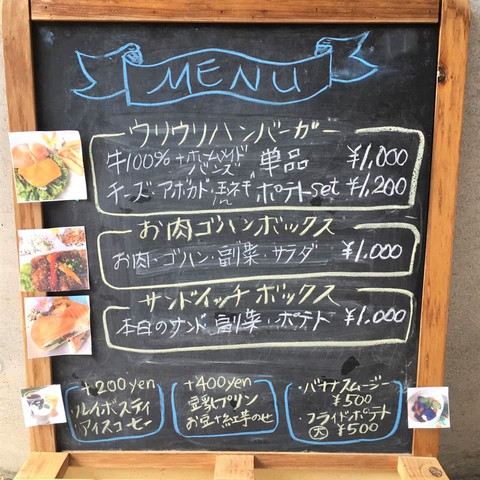 MENU
ウリウリハンバーガー
牛100%+ホームメイドバンズ 単品 ¥1,000
チーズ・アボカド・玉ネギ ポテトset ¥1,200
お肉ゴハンボックス
お肉・ゴハン・副菜・サラダ ¥1.000
サンドイッチボックス
本日のサンド・副菜・ポテト ¥1.000
+200yen
ルイボスティ
アイスコーヒー
+400yen
豆乳プリン
お豆+紅芋のせ
・バナナスムージー
¥500
・フライドポテト
大 ¥500